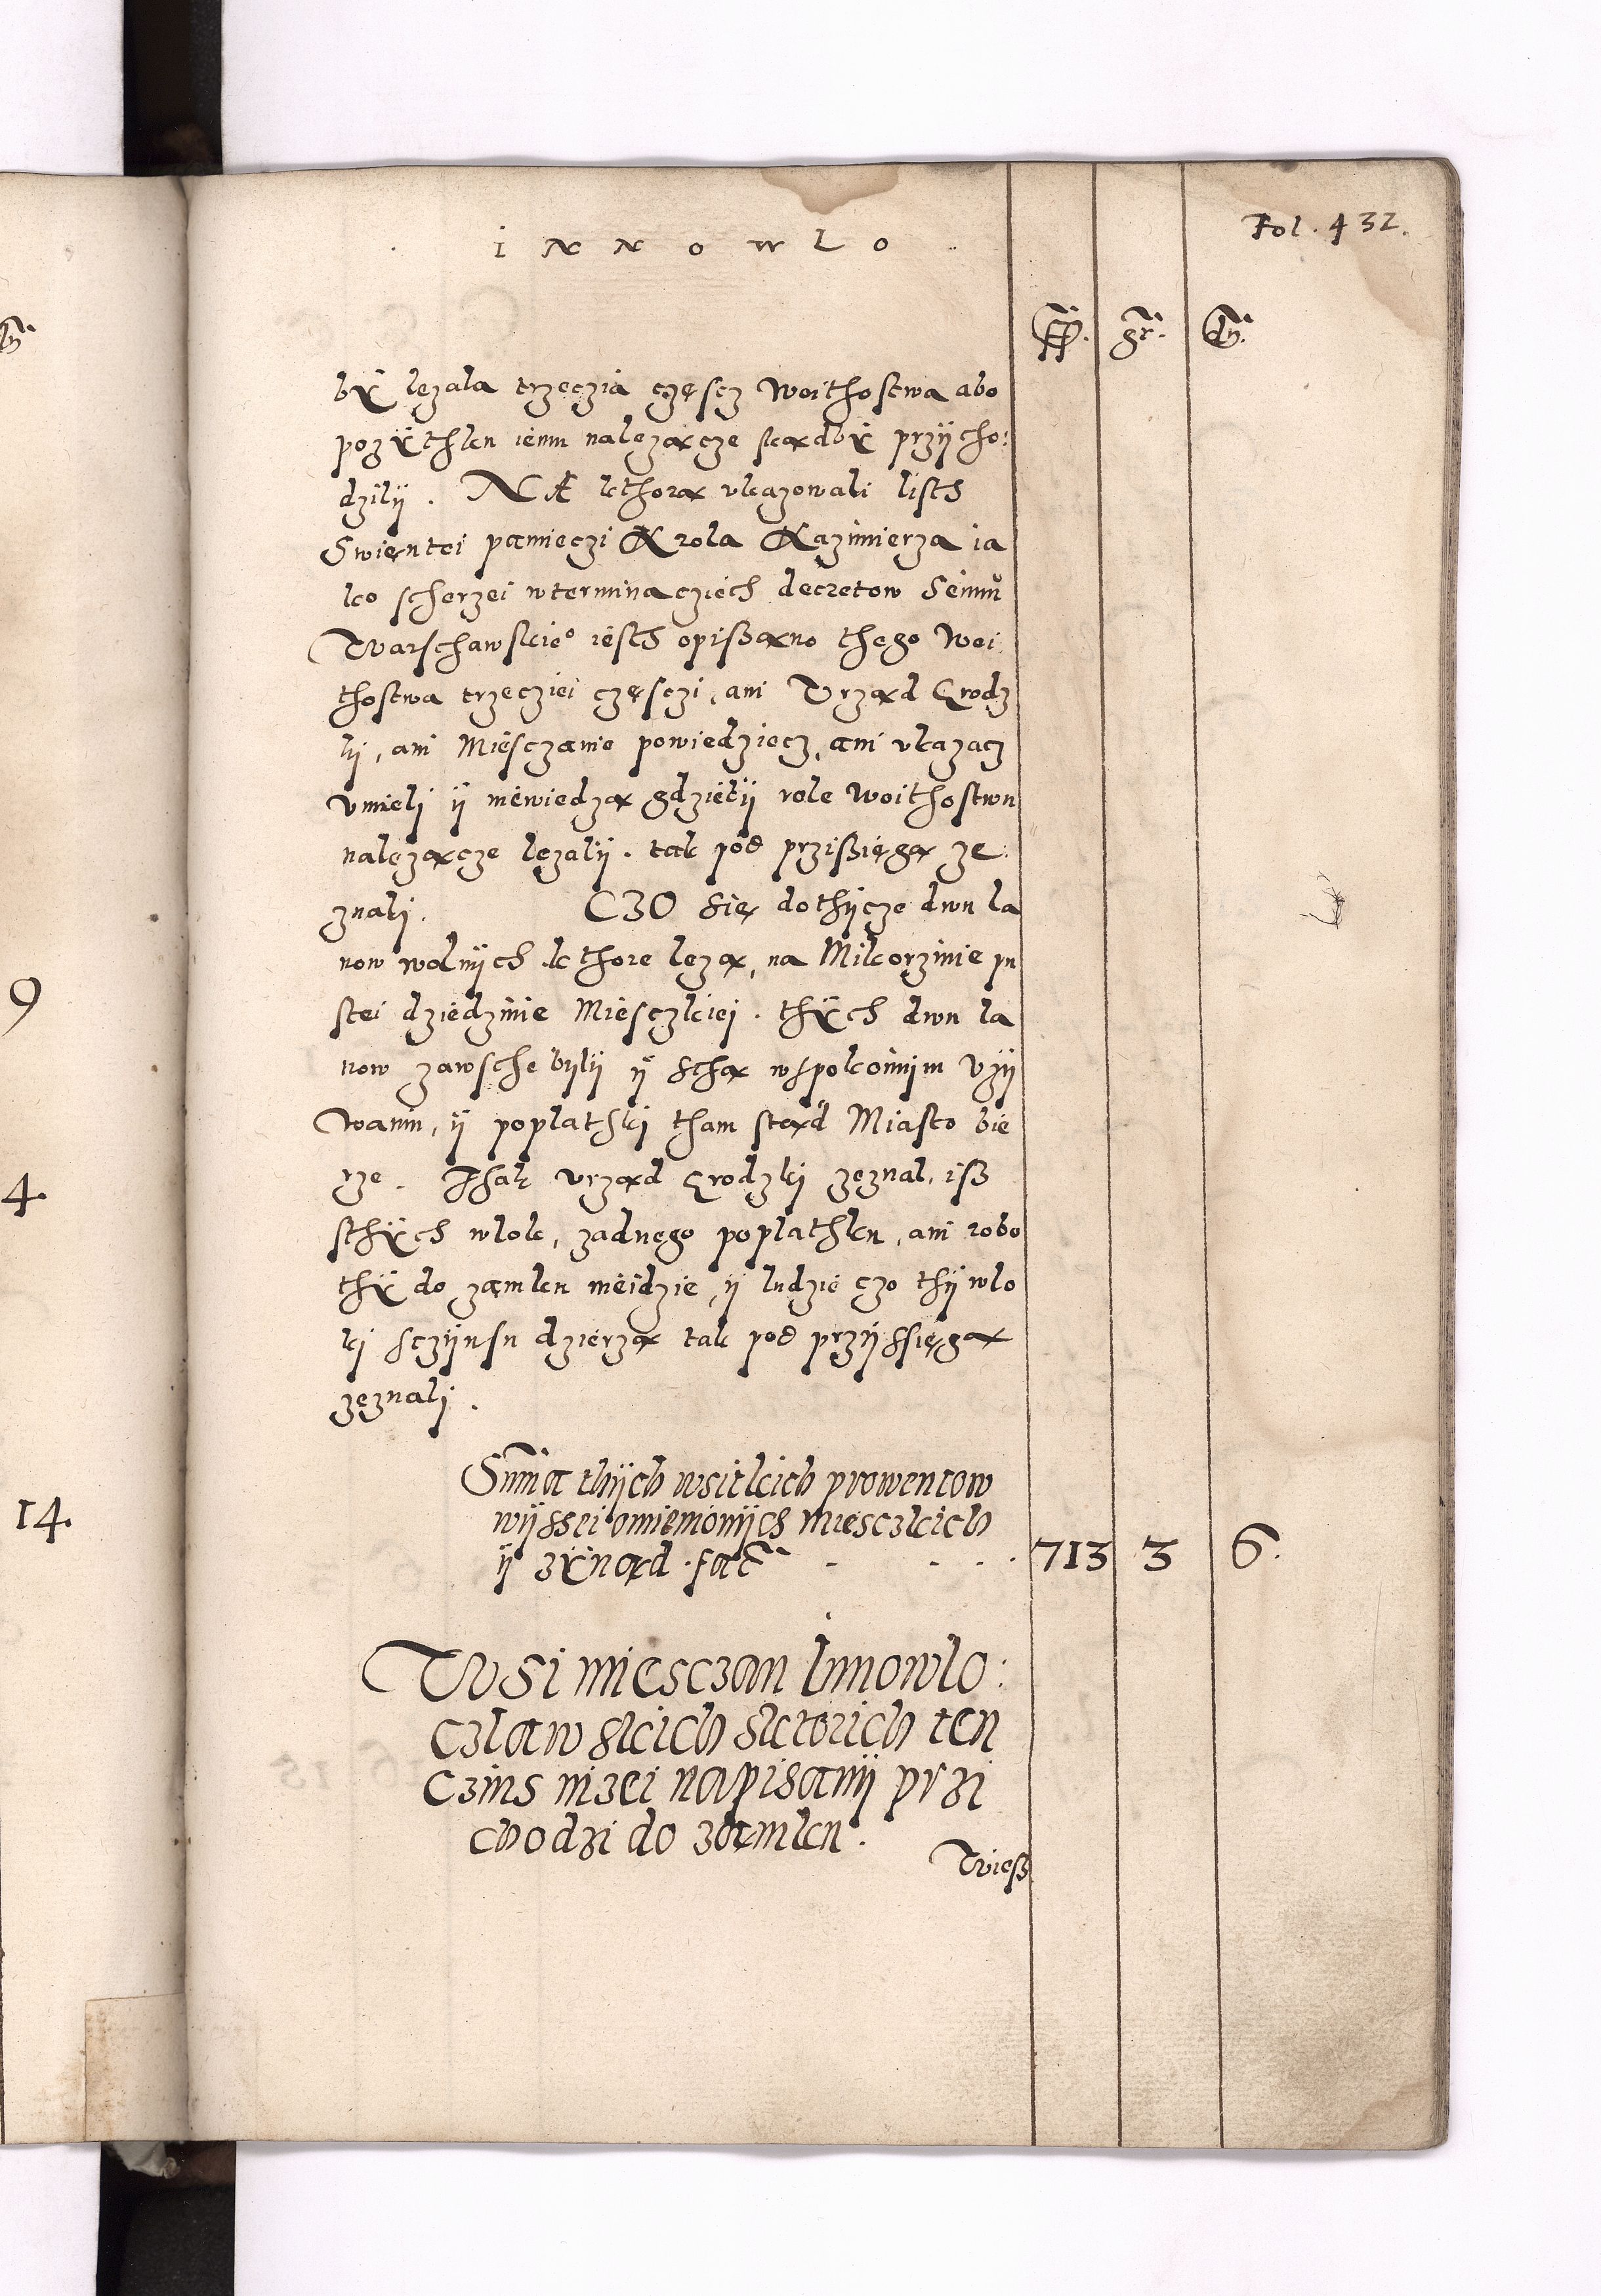 innowlo
Fol. 432.
gr. dn.
bÿ lezala trzeczia częscz woithostwa abo
pozÿthku iemu nalezącze skądbÿ przÿcho:
dzilÿ. NA kthorą ukazowali listh
Swięntei pamieczi Krola Kazimierza ia
ko scherzei wterminacziech decretow Seimu
Warschawskie° iesth opißąno thego woi
thostwa trzecziei częsczi, ani Vrząd Grodz
kj, ani Miesczanie powiedziecz, ani ukazacz
vmielj ÿ niewiedzą gdziebÿ role woithostwu
nalezącze lezalÿ. tak pod przißięgą ze:
znalj. CZO się dothÿcze dwu la
now wolnÿch kthore lezą, na Mikorzinie pu
stei dziedzinie Miesczkiej. thÿch dwu la
now zawsche bÿlÿ ÿ sthą wspokoinim vzÿ
waniu, ÿ poplathkj tham stąd Miasto bie
rze. Thak vrząd Grodzkj zeznal, iß
sthÿch wlok, zadnego poplathku, ani robo
thÿ do zamku nieidzie, ÿ ludzie czo thÿ wlo
kj sczÿnsu dzierzą tak pod przÿssięgą
zeznalj.
Suma thÿch wsitkich prowentow
wÿssei omienionÿch miesczkich
ÿ zÿnąd. fac̃ 713 3 6.
Wsi miesczan Innowlo:
czlawskich sktorich ten
Czins nizei napisanÿ przi
chodzi do zamku.
Wieß
9
4.
14.